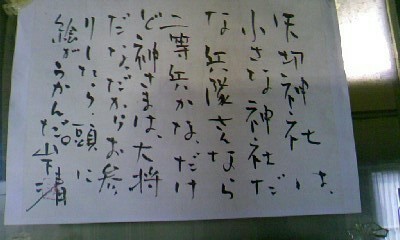 切神社は、
小さな神社だ
な兵隊さんなら
二等兵かな、だけ
ど神さまは、大将
だな、だからお参
りしたら、頭に
絵がうかんだ。山下清